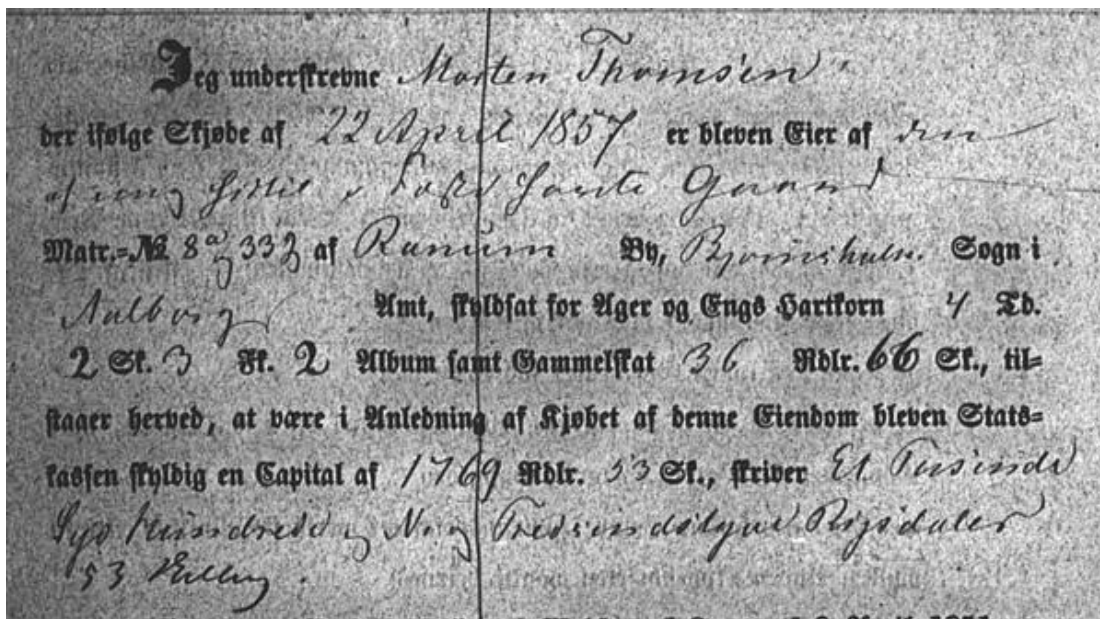 Jeg underskrevne Morten Thomsen
der ifølge Skjøde af 22 April 1857 er bleven Eier af den
af mig hidtil i Fæste havte Gaard
Matr.-№ 8a og 33g af Ranum By, Bjørnsholm Sogn i
Aalborg Amt, skyldsat for Ager og Engs Hartkorn 4 Td.
2 Sk. 3 Fk. 2 Album samt Gammelskat 36 Rdlr. 66 Sk., til-
staaer herved, at være i Anledning af Kjøbet af denne Eiendom bleven Stats-
kassen skyldig en Capital af 1769 Rdlr. 53 Sk., skriver Et Tusinde
Syv Hundrede og Ni og Tredsindstyve Rigsdaler
53 Skilling.